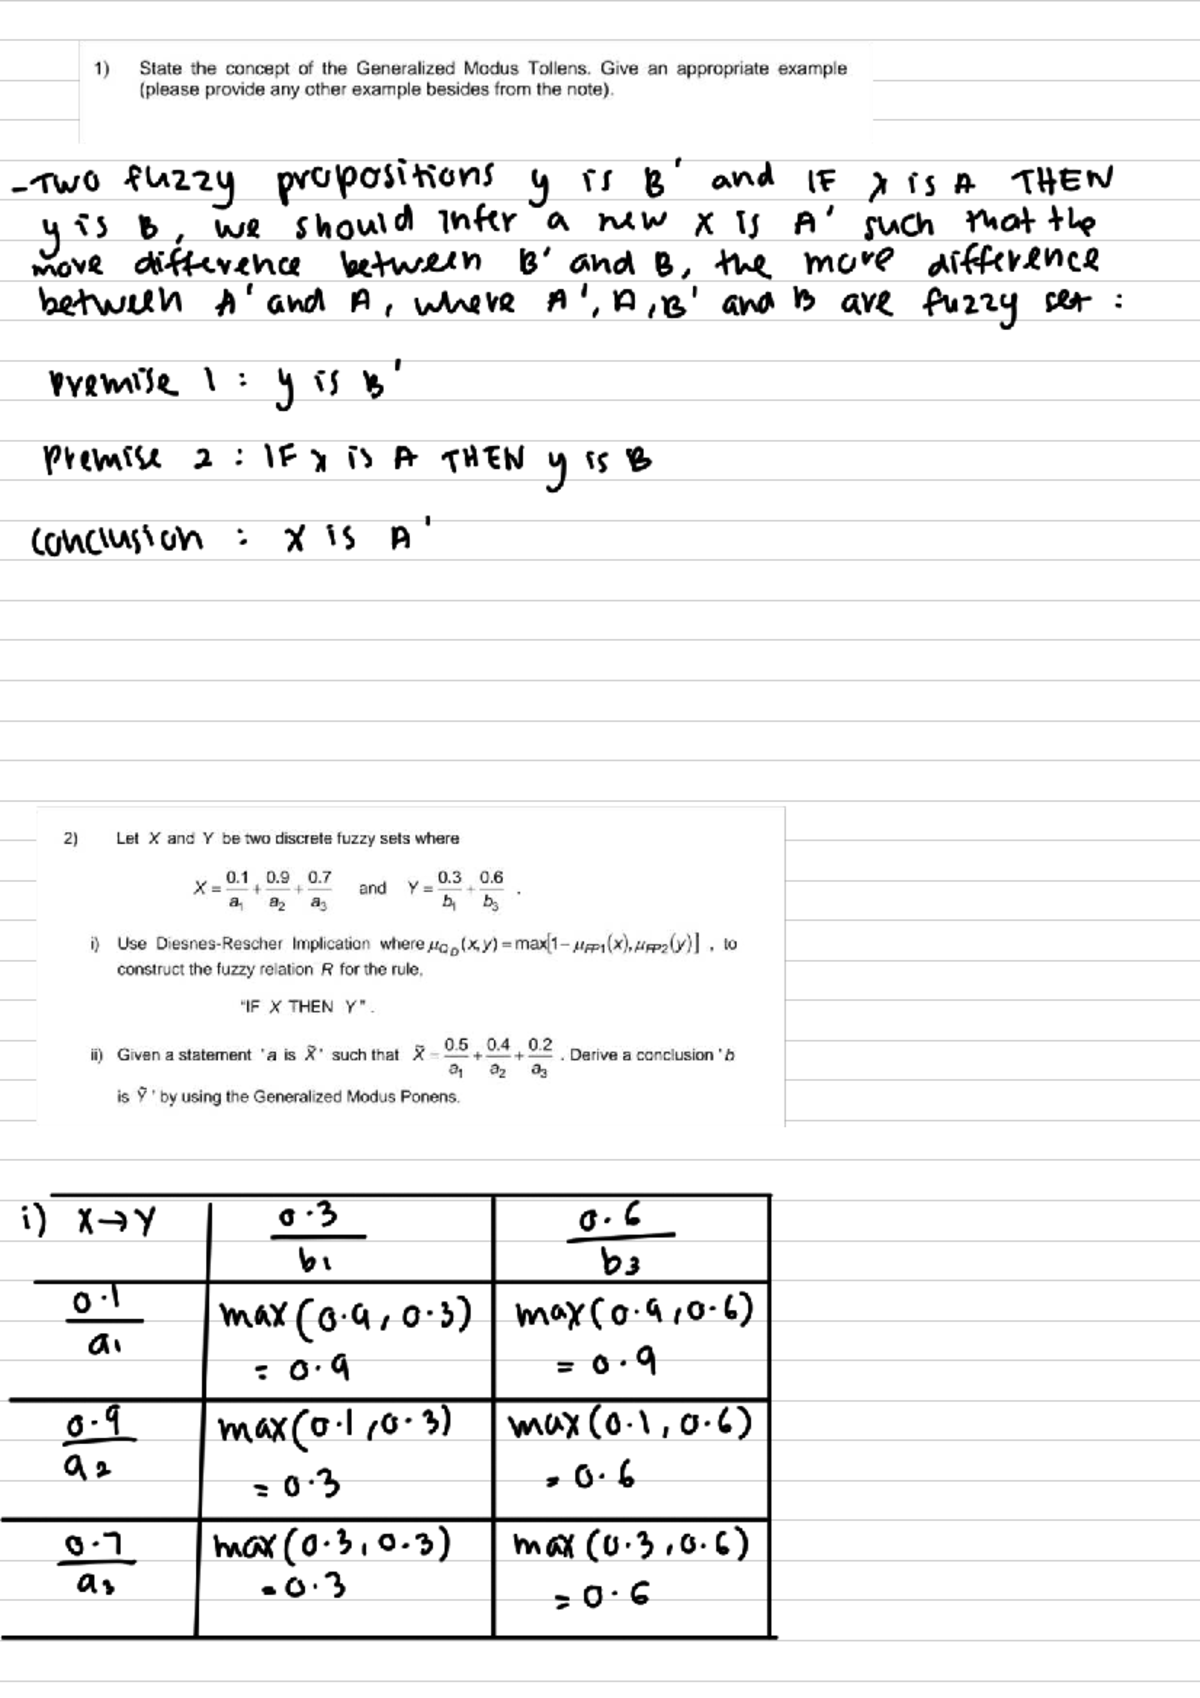 1) State the concept of the Generalized Modus Tollens. Give an appropriate example
(please provide any other example besides from the note).
- Two fuzzy propositions y is B' and IF x is A THEN
y is B, we should infer a new x is A' such that the
more difference between B' and B, the more difference
between A' and A, where A', A, B' and B are fuzzy set :
Premise 1 : y is B'
Premise 2 : IF x is A THEN y is B
Conclusion : x is A'
2) Let X and Y be two discrete fuzzy sets where
X = 0.1/a₁ + 0.9/a₂ + 0.7/a₃ and Y = 0.3/b₁ + 0.6/b₃ .
i) Use Diesnes-Rescher Implication where μ_{Q_D}(x,y) = max[1− μ_{FP1}(x), μ_{FP2}(y)] , to
construct the fuzzy relation R for the rule,
"IF X THEN Y" .
ii) Given a statement 'a is X̃' such that X̃ = 0.5/a₁ + 0.4/a₂ + 0.2/a₃ . Derive a conclusion 'b
is Ỹ ' by using the Generalized Modus Ponens.
i) X→Y 0.3/b₁ 0.6/b₃
0.1/a₁ max(0.9, 0.3) max(0.9, 0.6)
= 0.9 = 0.9
0.9/a₂ max(0.1, 0.3) max(0.1, 0.6)
= 0.3 = 0.6
0.7/a₃ max(0.3, 0.3) max(0.3, 0.6)
= 0.3 = 0.6